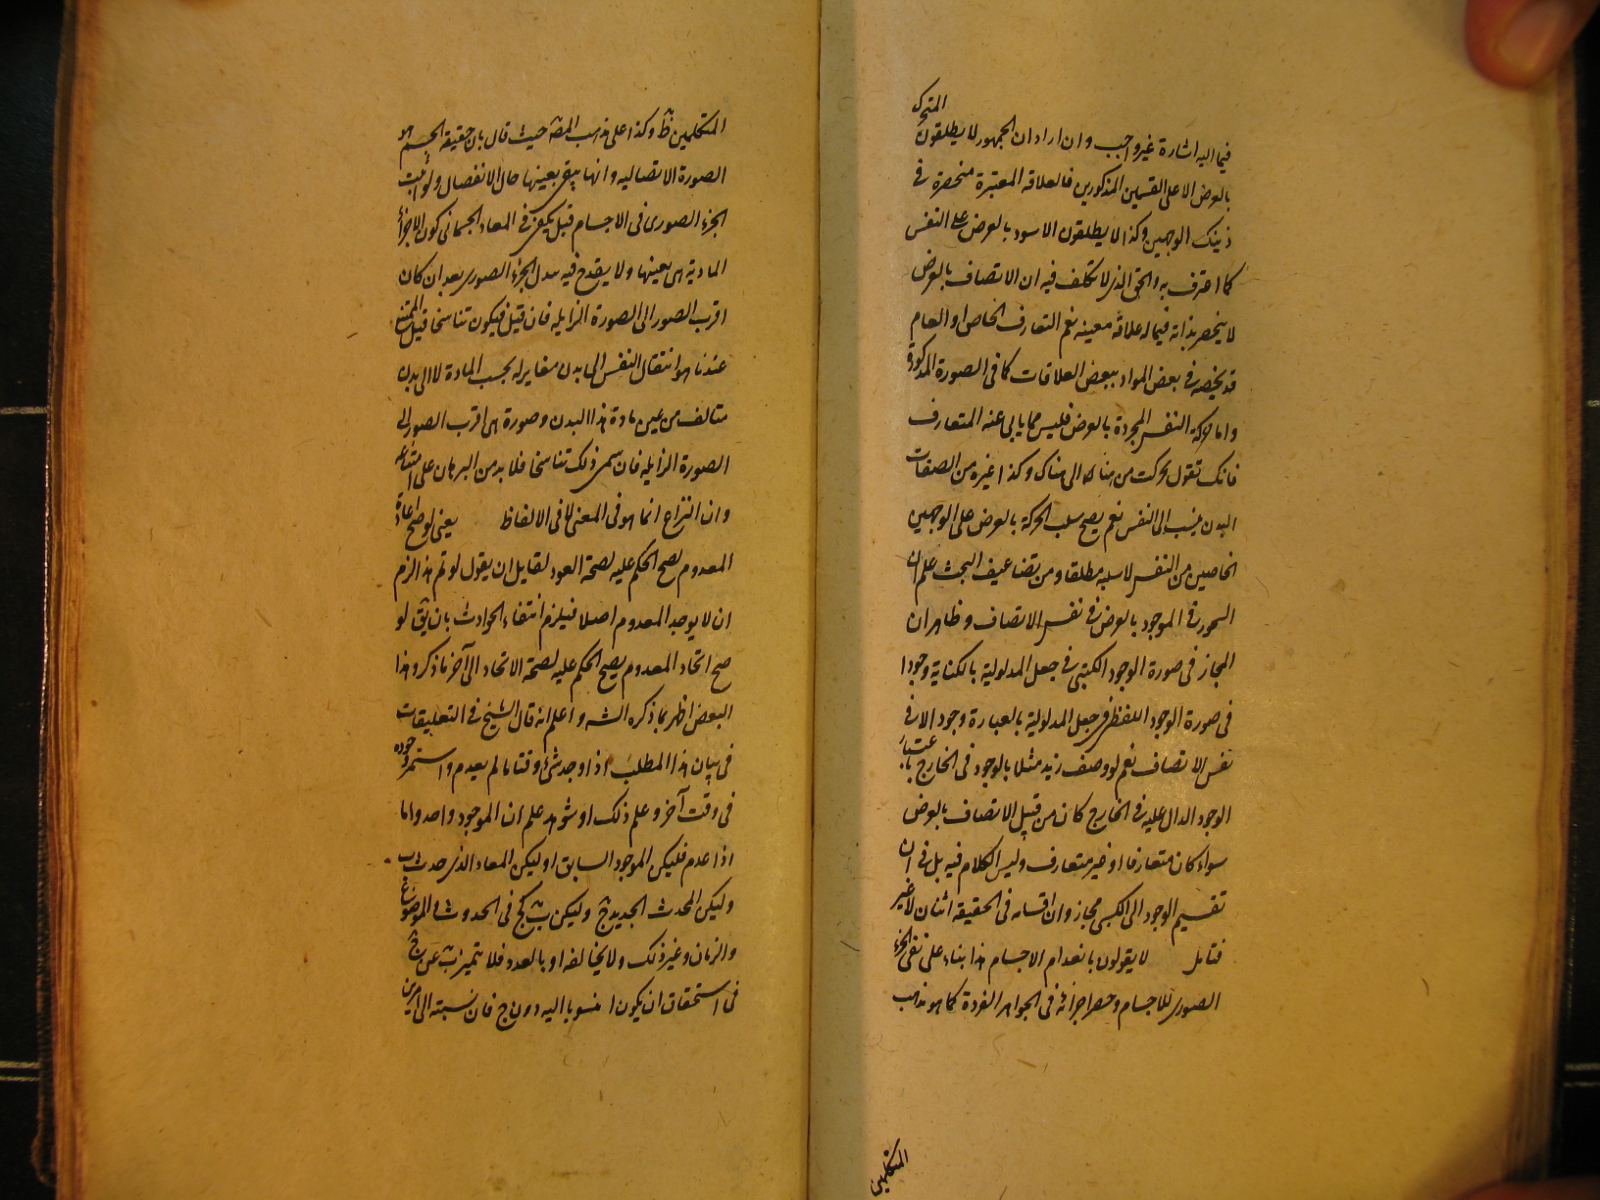 فيما اليه اشارة غير واجب وان اراد ان الجمهور لا يطلقون المتحرك
بالعرض الا على القسمين المذكورين فالعلاقه المعتبرة منحصرة في
ذينك الوجهين وكذا لا يطلقون الاسود بالعرض على النفس
كما اعترف به والحق الذى لا تكلف فيه ان الاتصاف بالعرض
لا ينحصر بذاته فيما له علاقة معينه نعم التعارف الخاص او العام
قد يخصه في بعض المواد ببعض العلاقات كما في الصورة المذكورة
واما حركة النفس المجردة بالعرض فليس مما يابى عنه المتعارف
فانك تقول تحركت من هناك الى هناك وكذا غيره من الصفات
البدن ينسب الى النفس نعم يصح سلب الحركة بالعرض على الوجهين
الخاصين من النفس لا سلبه مطلقا ومن تضاعيف البحث علم ان
التجوز في الموجود بالعرض في نفس الاتصاف وظاهر ان
المجاز في صورة الوجود الكتبى في جعل المدلولية بالكتابة وجودا
في صورة الوجود اللفظى في جعل المدلولية بالعبارة وجودا لا في
نفس الاتصاف نعم لو وصف زيد مثلا بالوجود في الخارج باعتبار
الوجود الدال عليه في الخارج كان من قبيل الاتصاف بالعرض
سواء كان متعارفا او غير متعارف وليس الكلام فيه بل في ان
تقسيم الوجود الى الكتبى مجاز وان اقسامه في الحقيقة اثنان لا غير
فتامل لا يقولون بانعدام الاجسام هذا بناء على نفى الجزء
الصورى للاجسام وحصر اجزائه في الجواهر الفردة كما هو مذهب
المتكلمين
المتكلمين وكذا على مذهب المصـ حيث قال بان حقيقة الجسم هو
الصورة الاتصاليه وانها يبقى بعينها حال الانفصال ولو اثبت
الجزء الصورى في الاجسام قيل يكفى في المعاد الجسمانى كون الاجزاء
المادية هى بعينها ولا يقدح فيه تبدل الجزء الصورى بعد ان كان
اقرب الصور الى الصورة الزايله فان قيل فيكون تناسخا قيل الممتنع
عندنا هو انتقال النفس الى بدن مغاير له بحسب المادة لا الى بدن
متالف من عين مادة هذا البدن وصورة هى اقرب الصور الى
الصورة الزايله فان سمى ذلك تناسخا فلا بد من البرهان على امتناعه
وان النزاع انما هو في المعنى لا في الالفاظ يعنى لو صح اعادة
المعدوم لصح الحكم عليه لصحة العود لقايل ان يقول لو تم هذا لزم
ان لا يوجد المعدوم اصلا فيلزم انتفاء الحوادث بان يق لو
صح اتحاد المعدوم يصح الحكم عليه لصحة الاتحاد الى آخر ما ذكر وهذا
البعض اظهر مما ذكره الشـ واعلم انه قال الشيخ في التعليقات
في بيان هذا المطلب اذا وجد شئ وقتا ما لم يعدم واستمر وجوده
في وقت آخر وعلم ذلك او شوهد علم ان الموجود واحد واما
اذا عدم فليكن الموجود السابق ا وليكن المعاد الذى حدث ب
وليكن المحدث الجديد ج وليكن ب كج في الحدوث والموضوع
والزمان وغير ذلك ولا يخالفه الا بالعدد فلا يتميز ب عن ج
في استحقاق ان يكون ا منسوبا اليه دون ج فان نسبته الى امرين